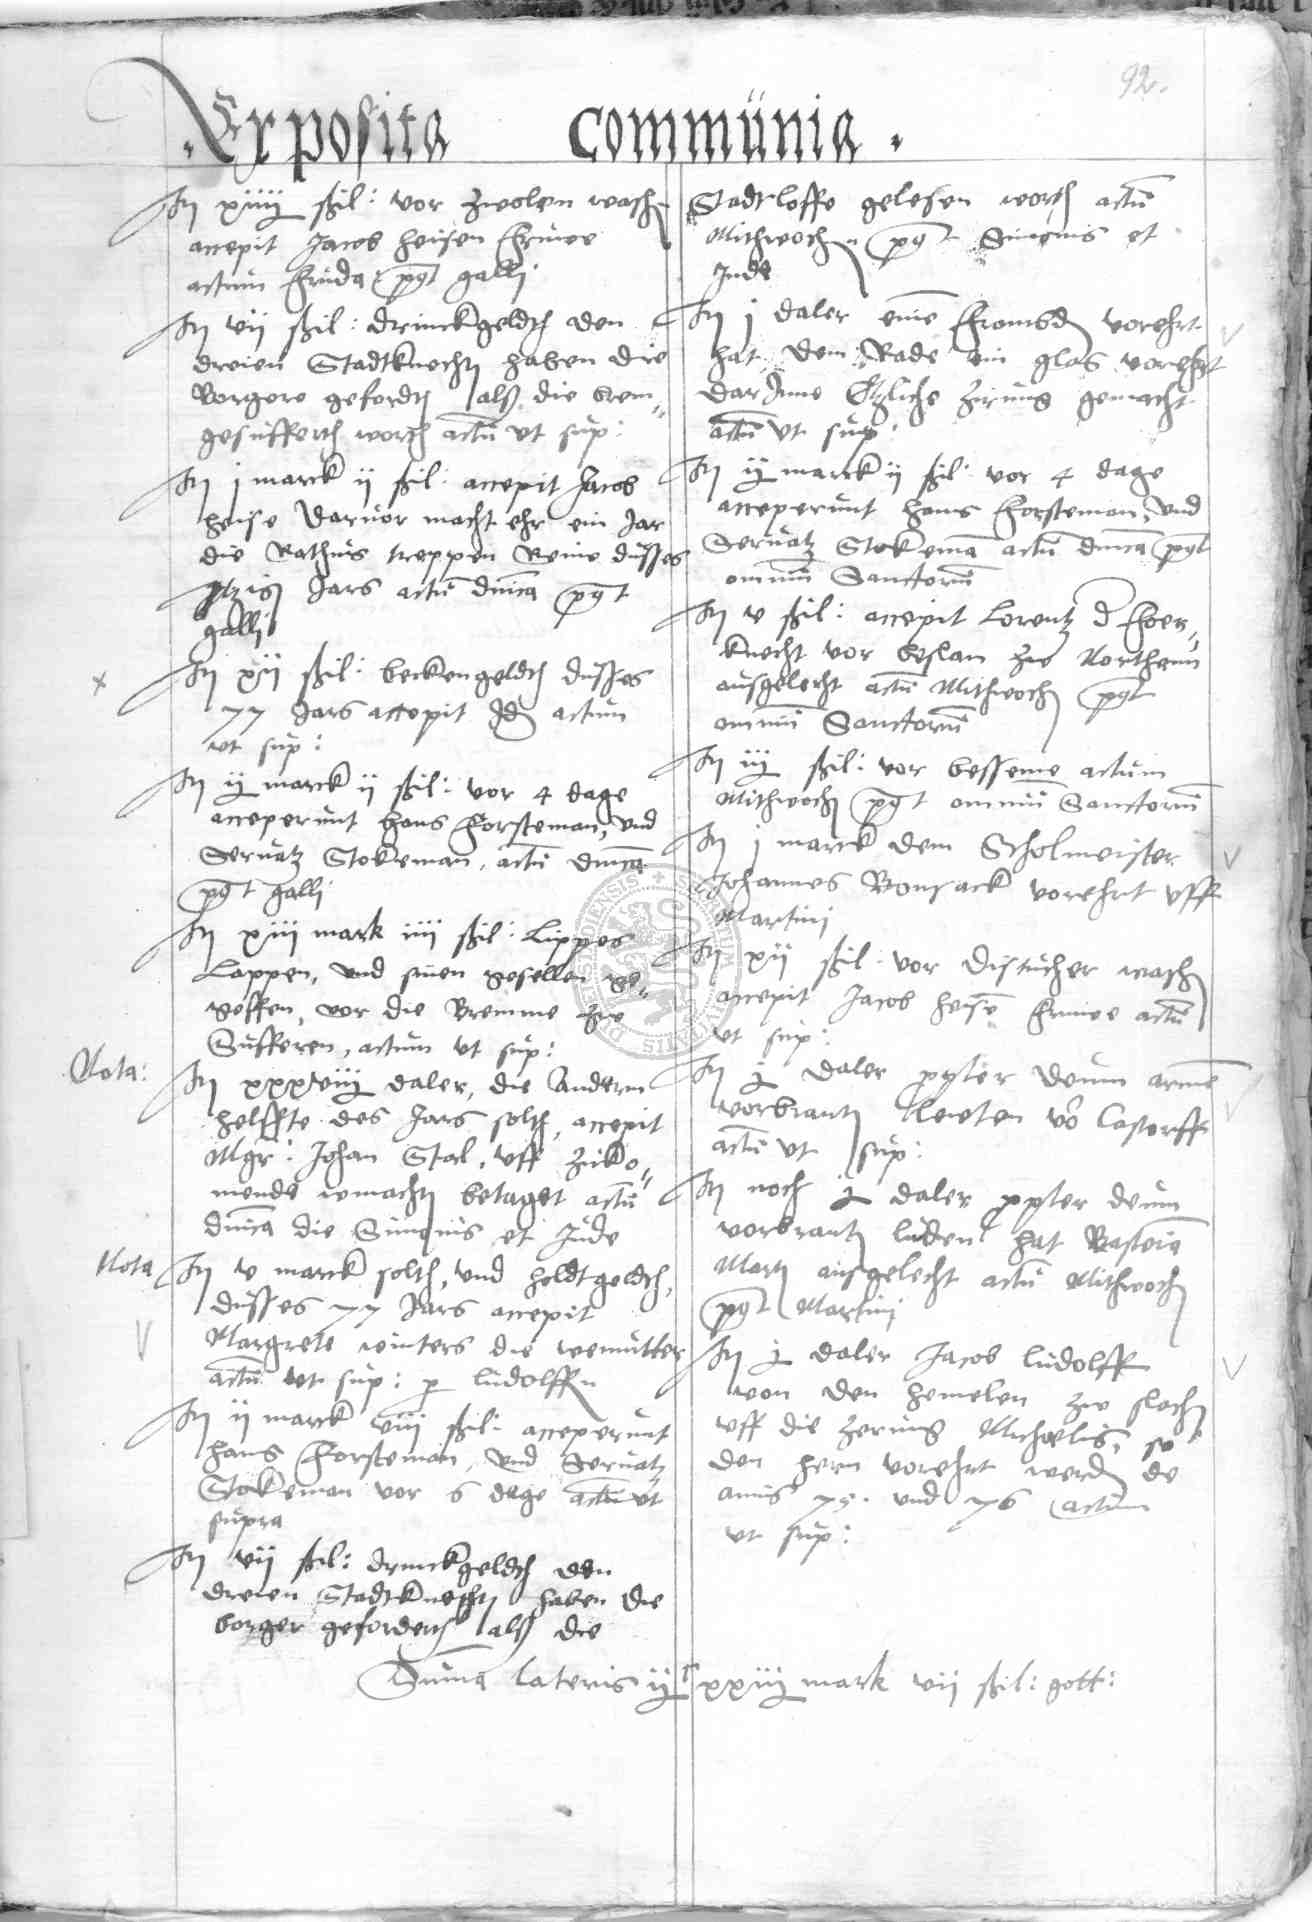 92.
Exposita communia.
It xiiii ßil: vor zwolen wasch
accepit Jacob Heisen Fruwe
actum Frida pt galli
It vii ßil: drinckgeldt den
dreien Stadtknecht haben die
Borgere gefordt alß die brem„
gesufferth worth actu ut sup:
It j marck ii ßil: accepit Jacob
Heise Daruor macht ehr ein Jar
die Rathus treppen Reine dusses
Jars actu dnica pt
galli
It xii ßil: beckengeldt dusses
77 Jars accepit Id actum
ut sup:
It ij marck ii ßil: vor 4 dage
acceperunt Hans Forsteman, und
Seruatz Stokeman, actu dnica
pt galli
It xiii mark iiii ßil: Lippes
Lappen, und sinen gesellen ge„
geffen, vor die Bremme zw
Sufferen, actum ut sup:
Nota:
It xxxviii daler, die Anderm
helffte des Jars solth, accepit
Mgr: Johan Stal, uff zuko„
mende wmacht betaget actu
dnica die Simonis et Jude
Nota
It v marck solth, und holdtgeldt,
dusses 77 Jars accepit
Margrete winters die wemutter
actu ut sup: p ludolff
It ii marck viii ßil: acceperunt
Hans Forsteman, und Seruatz
Stokeman vor 6 dage actu ut
supra
It vii ßil: drinckgeldt den
dreien Stadtknecht haben die
borger geforderth alß die
Stadtloffe gelesen worth actu
Mithwoch pt Simonis et
Jude
It j daler eine Frombd vorehrt
hat dem Rade ein glas vorehrt
dar Inne Etzliche zirung gemacht
actu ut sup:
It ij marck ii ßil: vor 4 dage
acceperunt Hans Forsteman, und
Seruatz Stokema actu dnica pt
omniu Sanctoru
It v ßil: accepit Lorentz d Foer„
knecht vor beslan zw Northeim
ausgelecht actu Mithwoch pt
omniu Sanctoru
It iij ßil: vor besseme actum
Mithwoch pt omniu Sanctoru
It j marck dem Scholmeister
Johannes Bonsack vorehrt uff
Martini
It xii ßil: vor distucher wasch
accepit Jacob Heise Fruwe actu
ut sup:
It j daler ppter deum arme
vorbrant Leuten vo Lasterff
actu ut sup:
It noch j daler ppter deum
vorbrant luden hat
Mort ausgelecht actu Mithwoch
pt Martini
It j daler Jacob ludolff
von den hemelen zw slacht
uff die zerung Michaelis, so
den hern vorehrt werd de
annis 75. und 76 actum
ut sup:
Suma lateris ij c xxiiij mark vii ßil: gott: